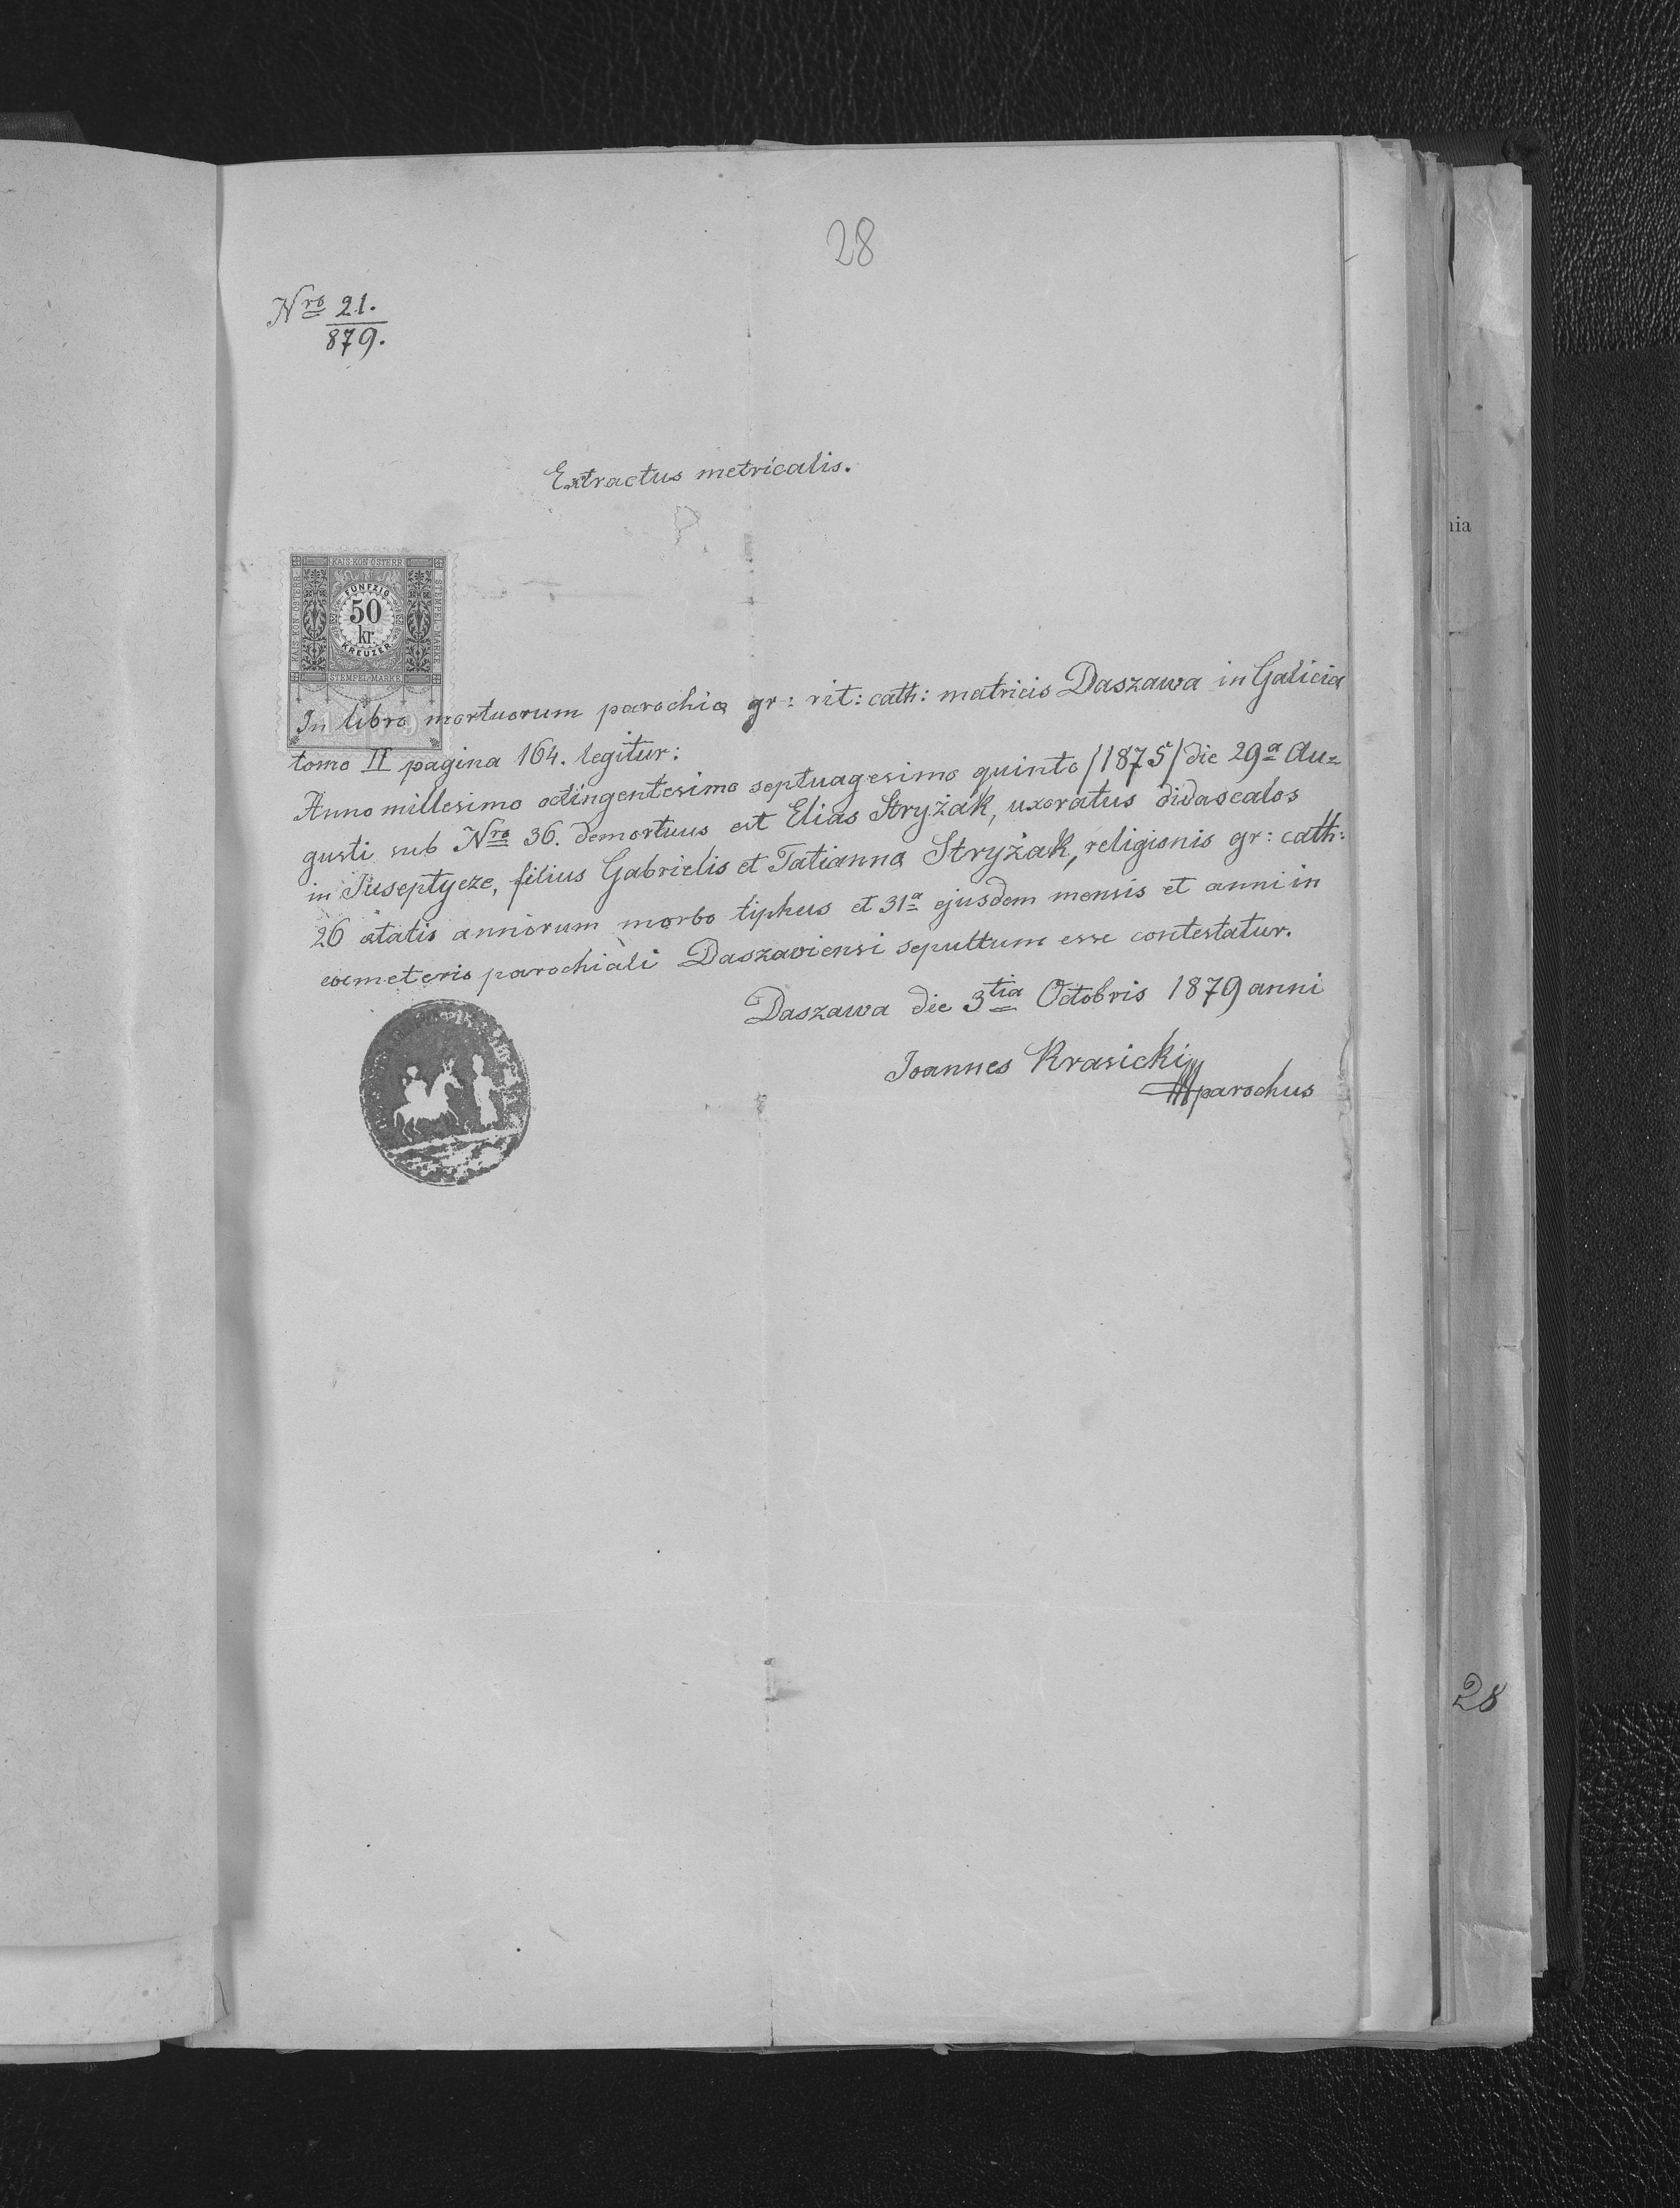 28
Nro 21.
879.
Extractus metricalis.
KAIS·KÖN·ÖSTERR·
KAIS·KÖN·ÖSTERR·
STEMPEL-MARKE
FÜNFZIG
50
kr.
KREUZER
STEMPEL-MARKE
In libro mortuorum parochiæ gr: rit: cath: matricis Daszawa in Galicia
tomo II pagina 164. legitur:
Anno millesimo octingentesimo septuagesimo quinto /1875/ die 29a Au=
gusti sub Nro 36. demortuus est Elias Stryżak, uxoratus didascalos
in Juseptycze, filius Gabrielis et Tatianna Stryżak, religionis gr: cath:
26 ætatis anniorum morbo tiphus et 31a ejusdem mensis et anni in
coemeterio parochiali Daszaviensi sepultum esse contestatur.
Daszawa die 3tia Octobris 1879 anni
Joannes Krasicki
parochus
nia
28